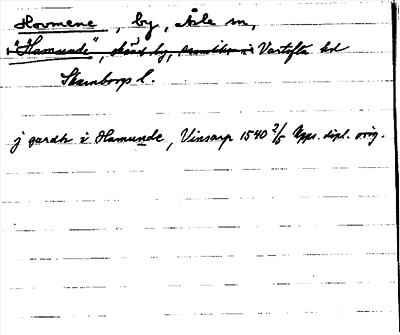 Hovmene, by, Åsle sn,
"Hamunde", okänd by, Vartofta hd
Skaraborgs l.
j gardh i Hamunde, Vinsarp 1540 2/5 Upps. dipl. orig.